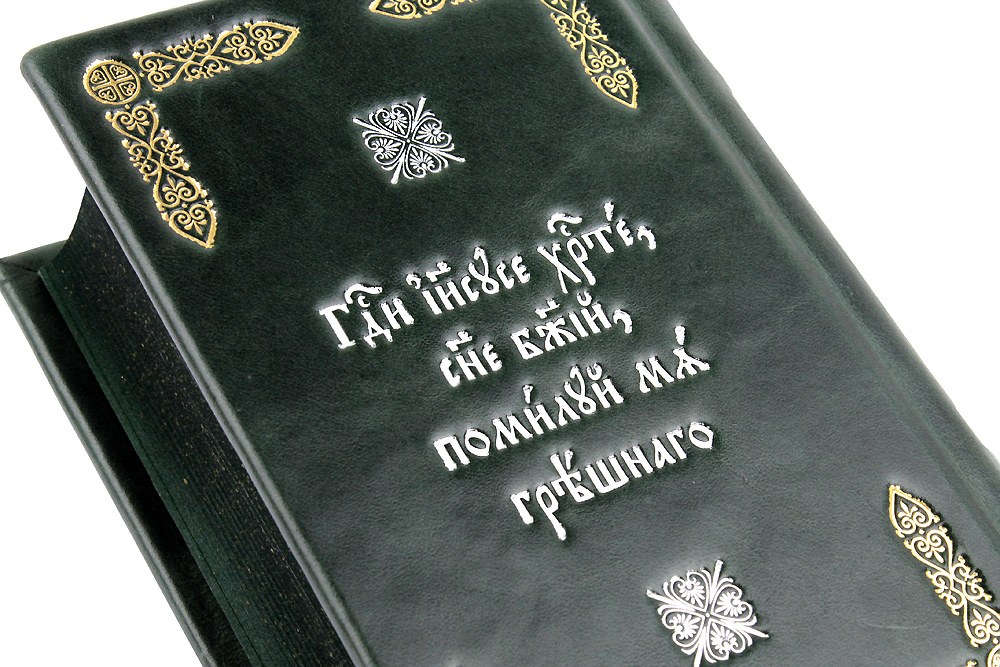 Гдⷭ҇и і҆и҃сꙋсе хрⷭ҇те́,
сн҃е бж҃їй,
поми́лꙋй мѧ̀
грѣ́шнаго